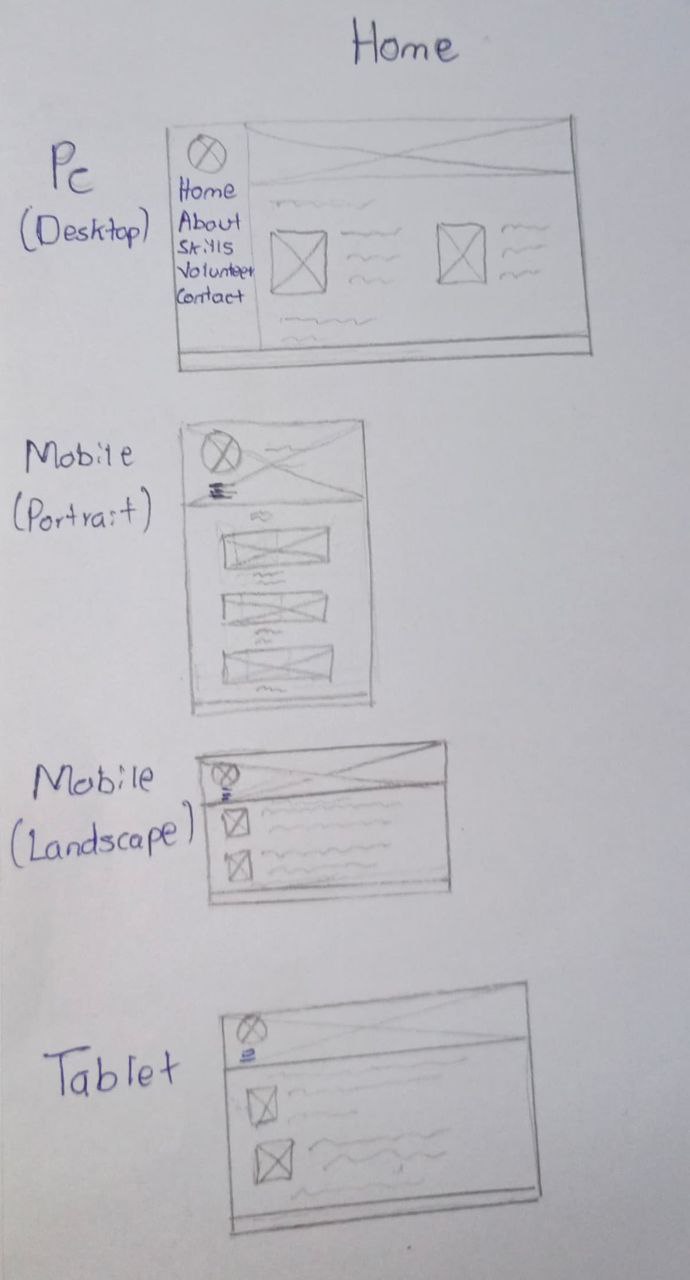 Home
Pc
(Desktop)
Home
About
Skills
Volunteer
Contact
Mobile
(Portrait)
Mobile
(Landscape)
Tablet